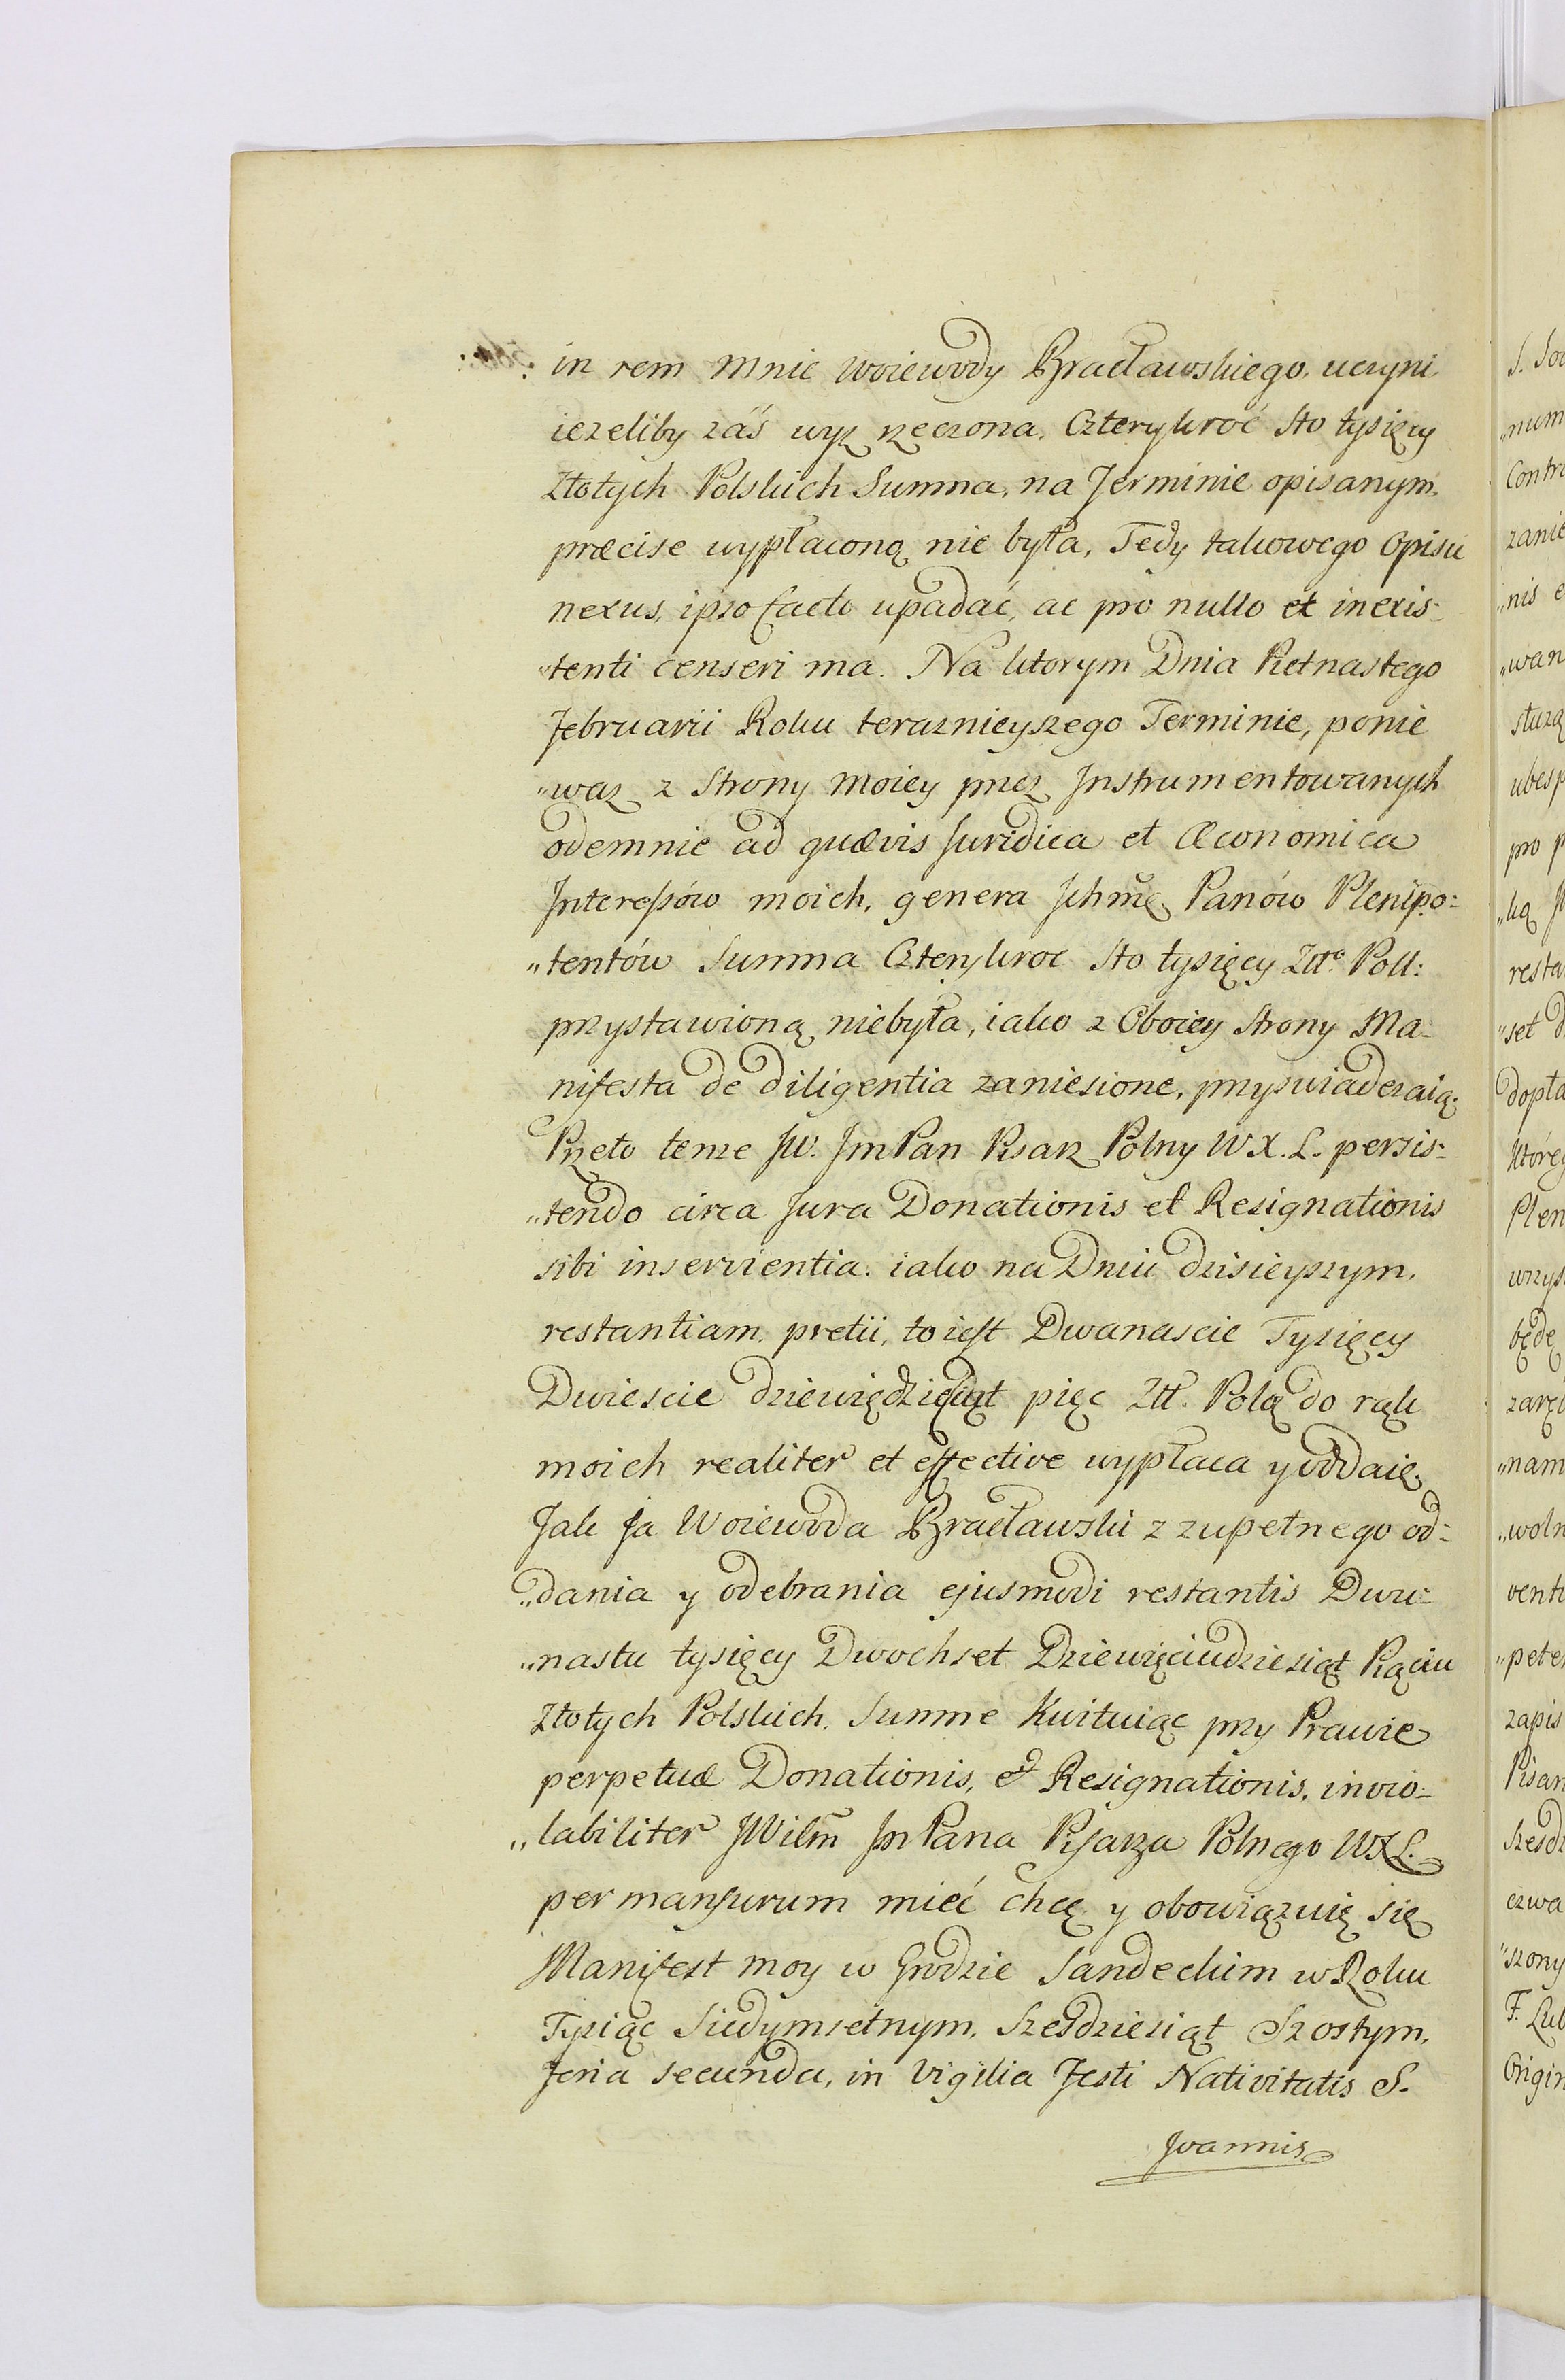 in rem mnie Woiewody Bracławskiego, uczyni
iezeliby záś wyz rzeczona, Czterykroć Sto tysięcy
Złotych Polskich Summa, na Terminie opisanym,
præcise wypłaconą nie była, Tedy takowego Opisu
nexus, ipso facto upadać, ac pro nullo et inexis-
„tenti censeri ma. Na ktorym Dnia Pietnastego
Februarii Roku teraznieyszego Terminie, ponie
„waz z Strony moiey przez Instrumentowanych
odemnie ad quævis Juridica et Œconomica
Interessów moich, genera Ichmę Panów Plenipo:
„tentów Summa Czterykroc Sto tysięcy Złto Poll:
przystawioną niebyła, iako z Oboiey Strony Ma-
nifesta de diligentia zaniesione, przyswiadczaią;
Przeto tenze JW. Jm Pan Pisarz Polny W.X.L. persis-
„tendo circa Jura Donationis et Resignationis
sibi inservientia. iako na Dniu dzisieyszym,
restantiam pretii, to iest Dwanascie Tysięcy
Dwiescie dziewiędziesiąt pięc Złł. Polą do rąk
moich realiter et effective wypłaca y oddaie,
Jak Ja Woiewoda Bracławski z zupełnego od-
„dania y odebrania ejusmodi restantis Dwu-
„nastu tysięcy Dwochset Dziewięciudziesiąt Piąciu
Złotych Polskich. Summe Kwituiąc przy Prawie
perpetuæ Donationis, et Resignationis, invio-
„labiliter JWilm Jm Pana Pisarza Polnego WXL.
permansurum mieć chcę y obowiązuię się
Manifest moy w Grodzie Sandeckim w Roku
Tysiąc Siedymsetnym, Szesdziesiąt Szostym,
Feria secunda, in Vigilia Festi Nativitatis S.
Joannis